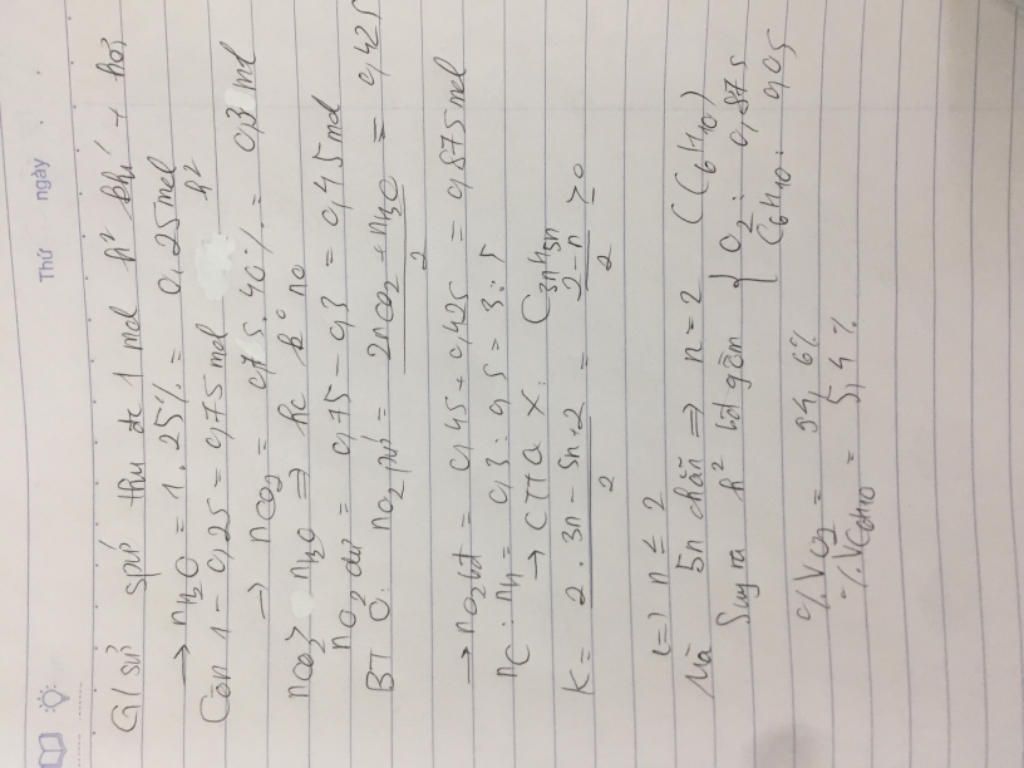 Thứ ngày
Giả sử spứ thu đc 1 mol h² khí + hơi
→ nH₂O = 1 . 25% = 0,25 mol
Còn 1 - 0,25 = 0,75 mol h²
→ nCO₂ = 0,75 . 40% = 0,3 mol
nCO₂ > nH₂O ⇒ hc k° no
nO₂ dư = 0,75 - 0,3 = 0,45 mol
BT O: nO₂ pứ = (2nCO₂ + nH₂O)/2 = 0,425
→ nO₂ bđ = 0,45 + 0,425 = 0,875 mol
nC : nH = 0,3 : 0,5 = 3 : 5
→ CTTQ X: C₃ₙH₅ₙ
K = (2 . 3n - 5n + 2)/2 = (2 - n)/2 ≥ 0
(=) n ≤ 2
Mà 5n chẵn ⇒ n = 2 (C₆H₁₀)
Suy ra h² bđ gồm { O₂: 0,875
C₆H₁₀: 0,05
%VO₂ = 94,6%
%VC₆H₁₀ = 5,4%